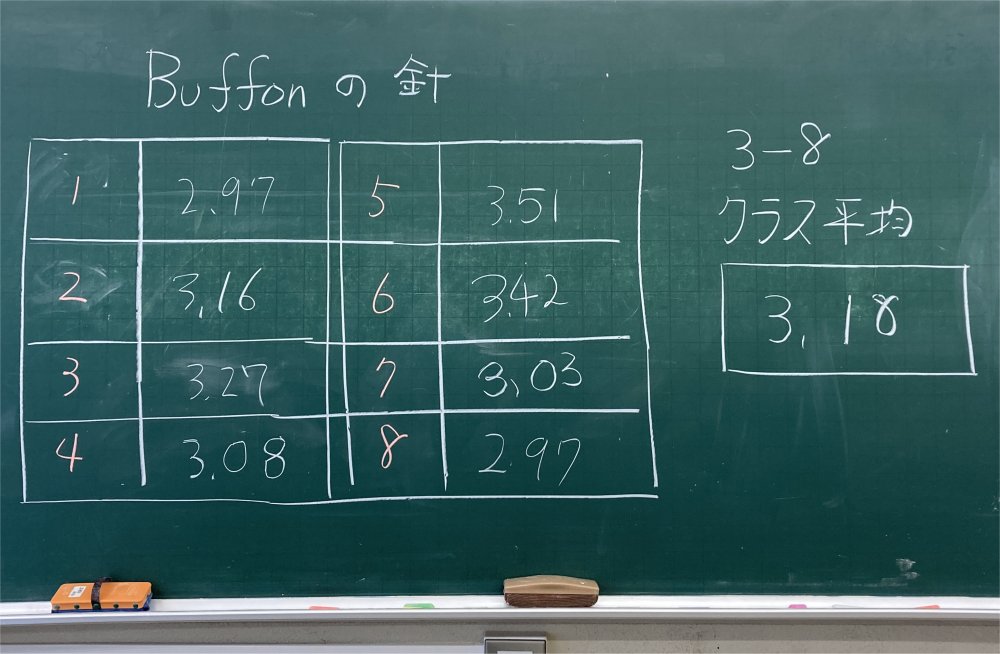 Buffonの針
1 2.97 5 3.51
2 3.16 6 3.42
3 3.27 7 3.03
4 3.08 8 2.97
3-8
クラス平均
3.18